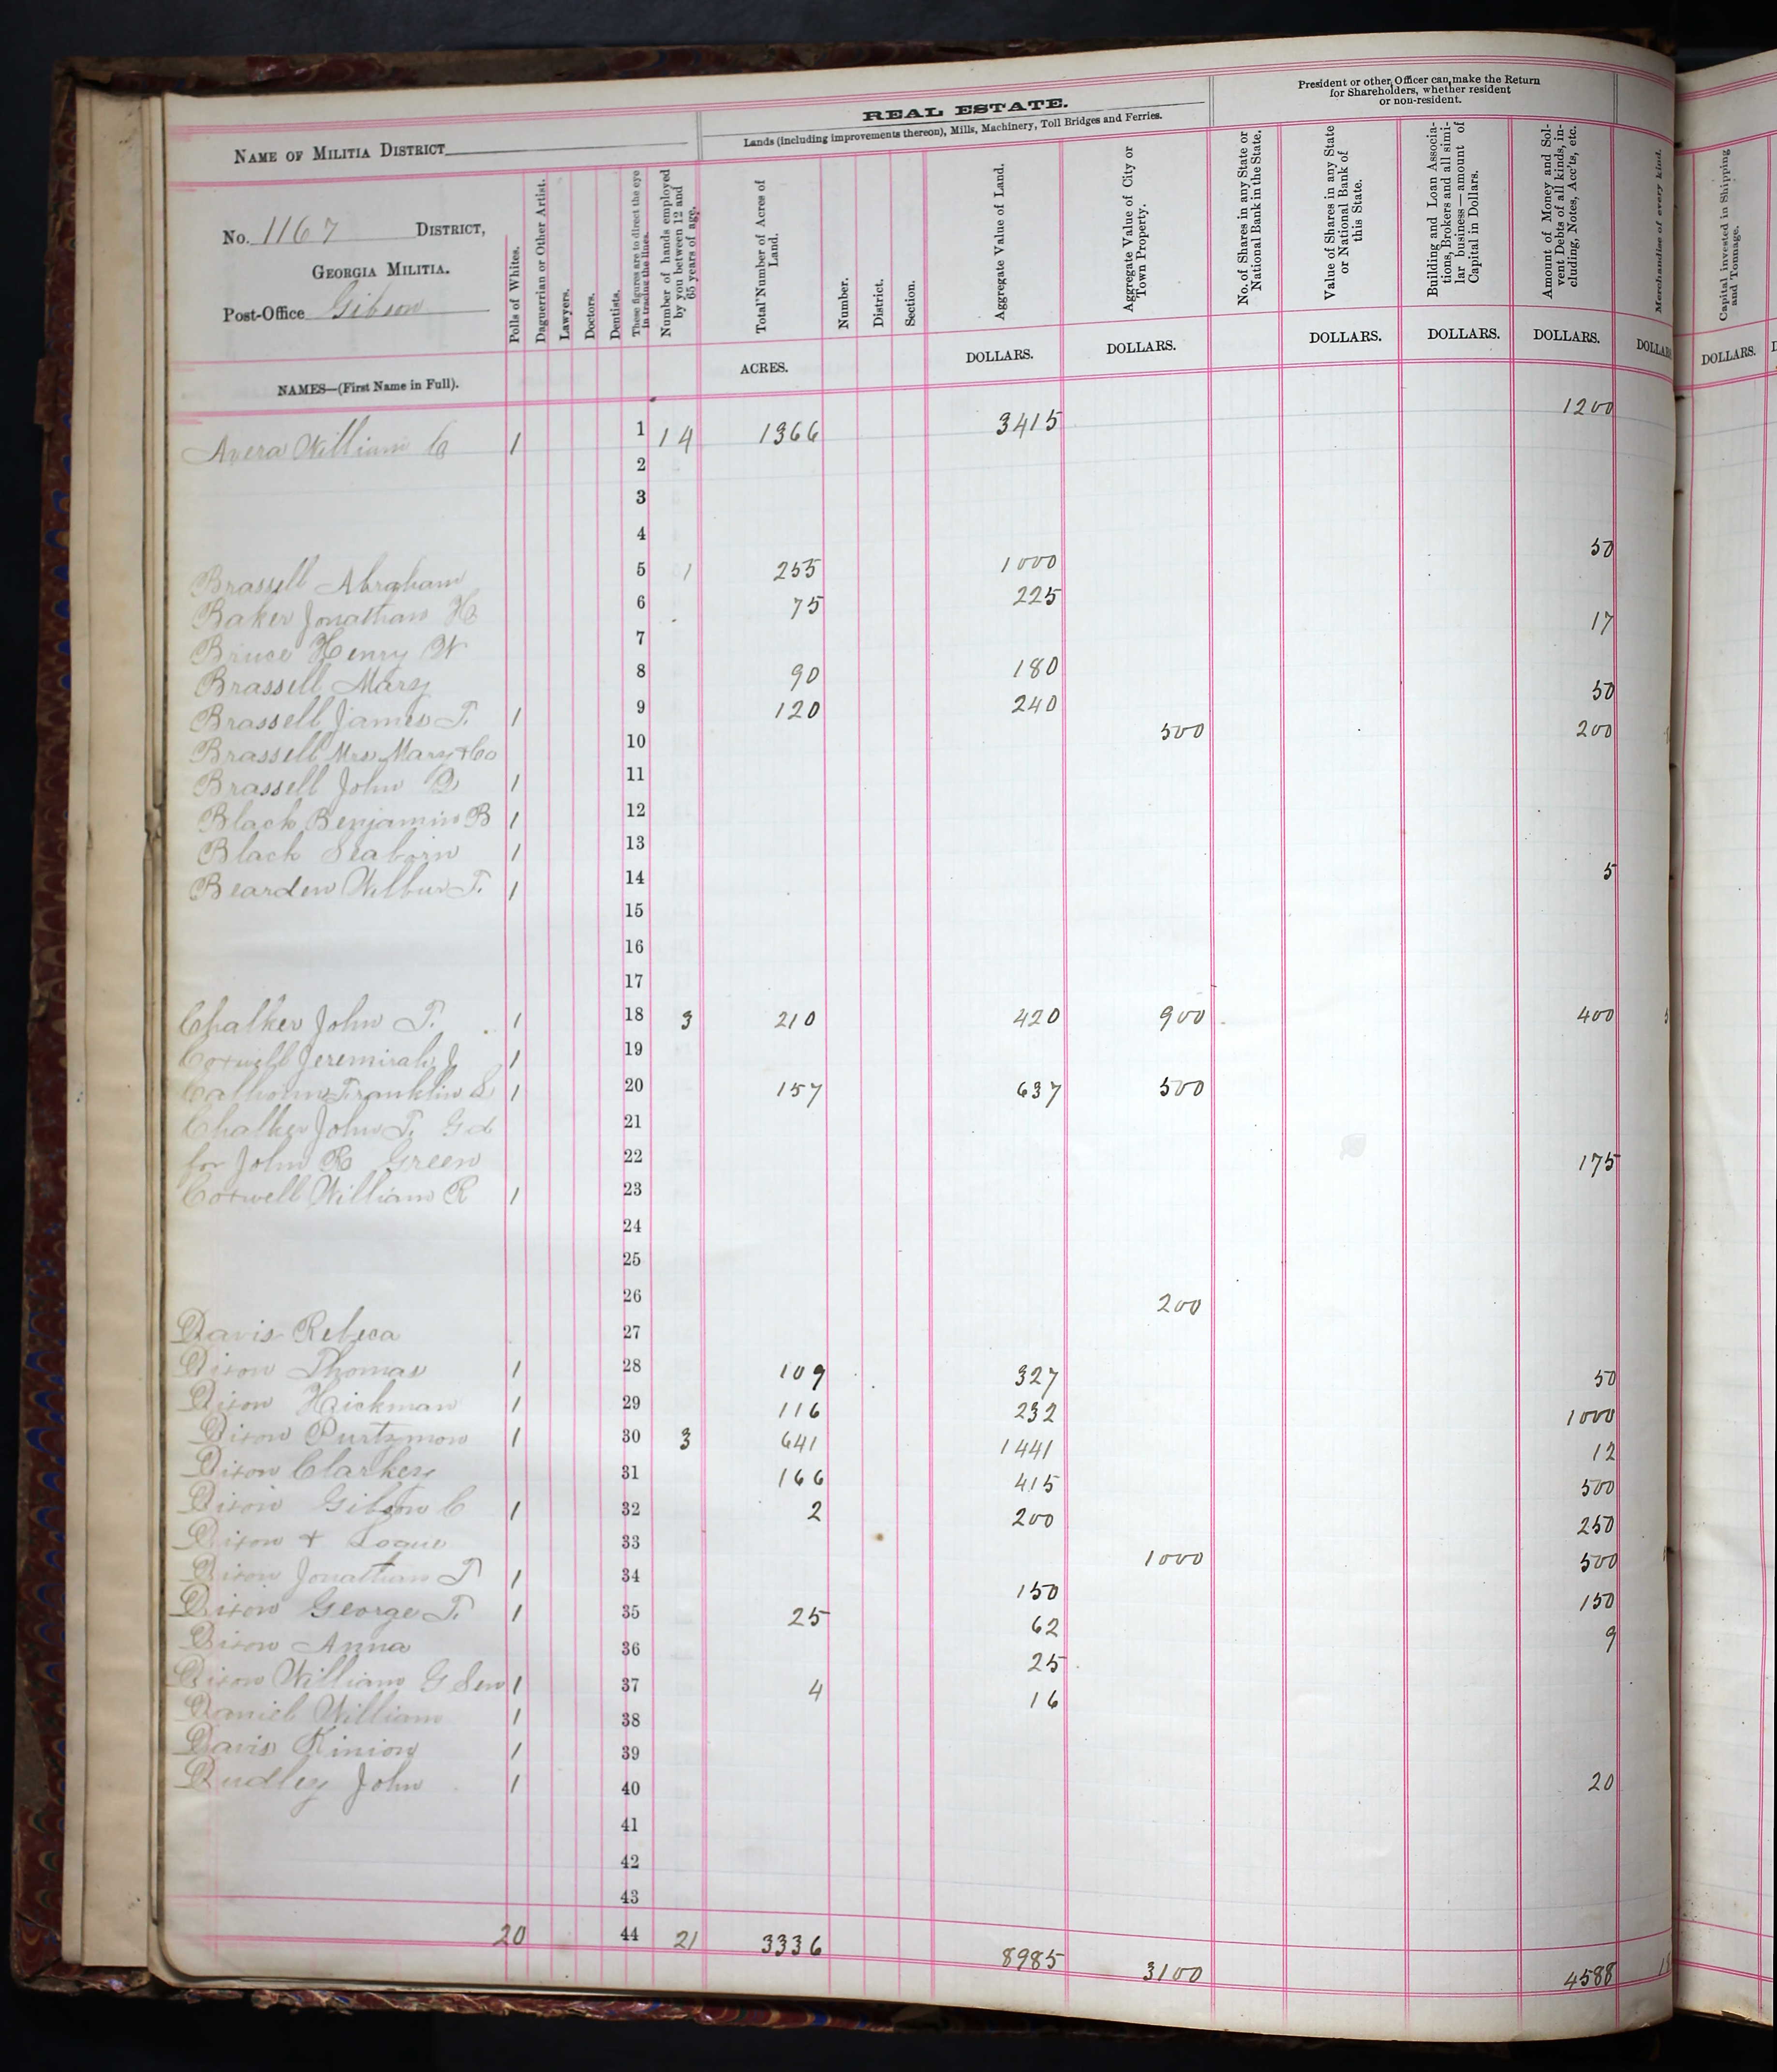 REAL ESTATE.
Lands (including improvements thereon), Mills, Machinery, Toll Bridges and Ferries.
President or other Officer can make the Return
for Shareholders, whether resident
or non-resident.
NAME OF MILITIA DISTRICT
No. 1167 DISTRICT,
GEORGIA MILITIA.
Post-Office Gibson
NAMES—(First Name in Full).
Polls of Whites.
Daguerrian or Other Artist.
Lawyers.
Doctors.
Dentists.
These figures are to direct the eye
in tracing the lines.
Number of hands employed
by you between 12 and
65 years of age.
Total Number of Acres of
Land.
ACRES.
Number.
District.
Section.
Aggregate Value of Land.
DOLLARS.
Aggregate Value of City or
Town Property.
DOLLARS.
No. of Shares in any State or
National Bank in the State.
Value of Shares in any State
or National Bank of
this State.
DOLLARS.
Building and Loan Associa-
tions, Brokers and all simi-
lar business—amount of
Capital in Dollars.
DOLLARS.
Amount of Money and Sol-
vent Debts of all kinds, in-
cluding, Notes, Acc'ts, etc.
DOLLARS.
Merchandise of every kind.
DOLLARS
Capital invested in Shipping
and Tonnage.
DOLLARS.
Avera William C 1 1 14 1366 3415 1200
2
3
4
Brassell Abraham 5 1 255 1000 50
Baker Jonathan H 6 75 225
Bruce Henry W 7 17
Brassell Mary 8 90 180
Brassell James T. 1 9 120 240 50
Brassell Mrs Mary & Co 10 500 200
Brassell John Q 1 11
Black Benjamin B 1 12
Black Seaborn 1 13
Bearden Wilbur T. 1 14 5
15
16
17
Chalker John T. 1 18 3 210 420 900 400
Coxwell Jeremirah J 1 19
Calhoun Franklin S 1 20 157 637 500
Chalker John T. Gd 21
for John R Green 22 175
Coxwell William R 1 23
24
25
26 200
Davis Rebeca 27
Dixon Thomas 1 28 109 327 50
Dixon Hickman 1 29 116 232 1000
Dixon Purtymon 1 30 3 641 1441 12
Dixon Clarkey 31 166 415 500
Dixon Gibson C 1 32 2 200 250
Dixon & Logue 33 1000 500
Dixon Jonathan T 1 34 150 150
Dixon George T. 1 35 25 62 9
Dixon Anna 36 25
Dixon William G Sen 1 37 4 16
Daniel William 1 38
Davis Kinion 1 39
Dudley John 1 40 20
41
42
43
20 44 21 3336 8985 3100 4588